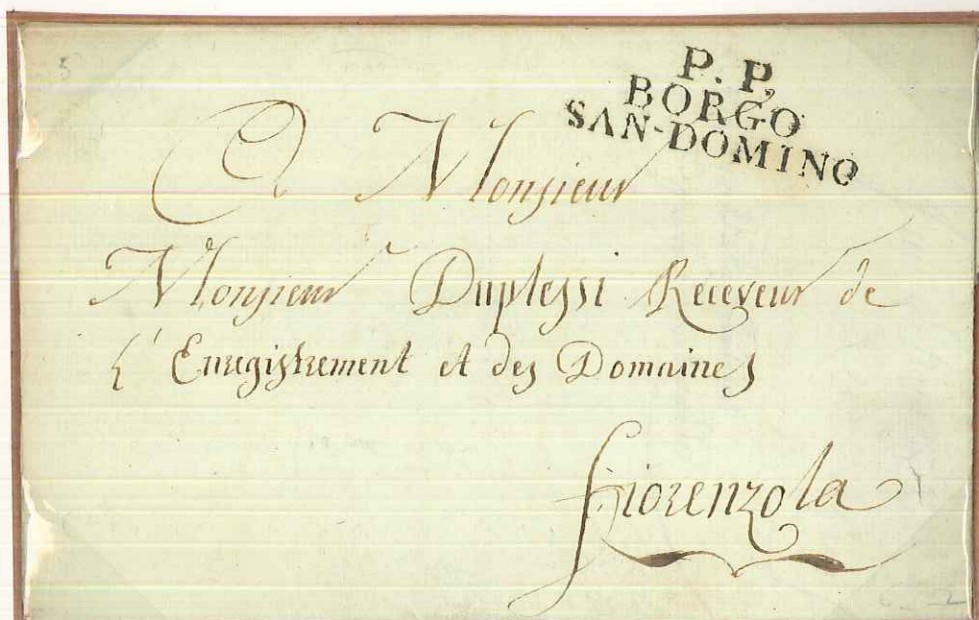 P. P.
BORGO
SAN-DOMINO
A Monsieur
Monsieur Duplessi Receveur de
L' Enregistrement et des Domaines
fiorenzola